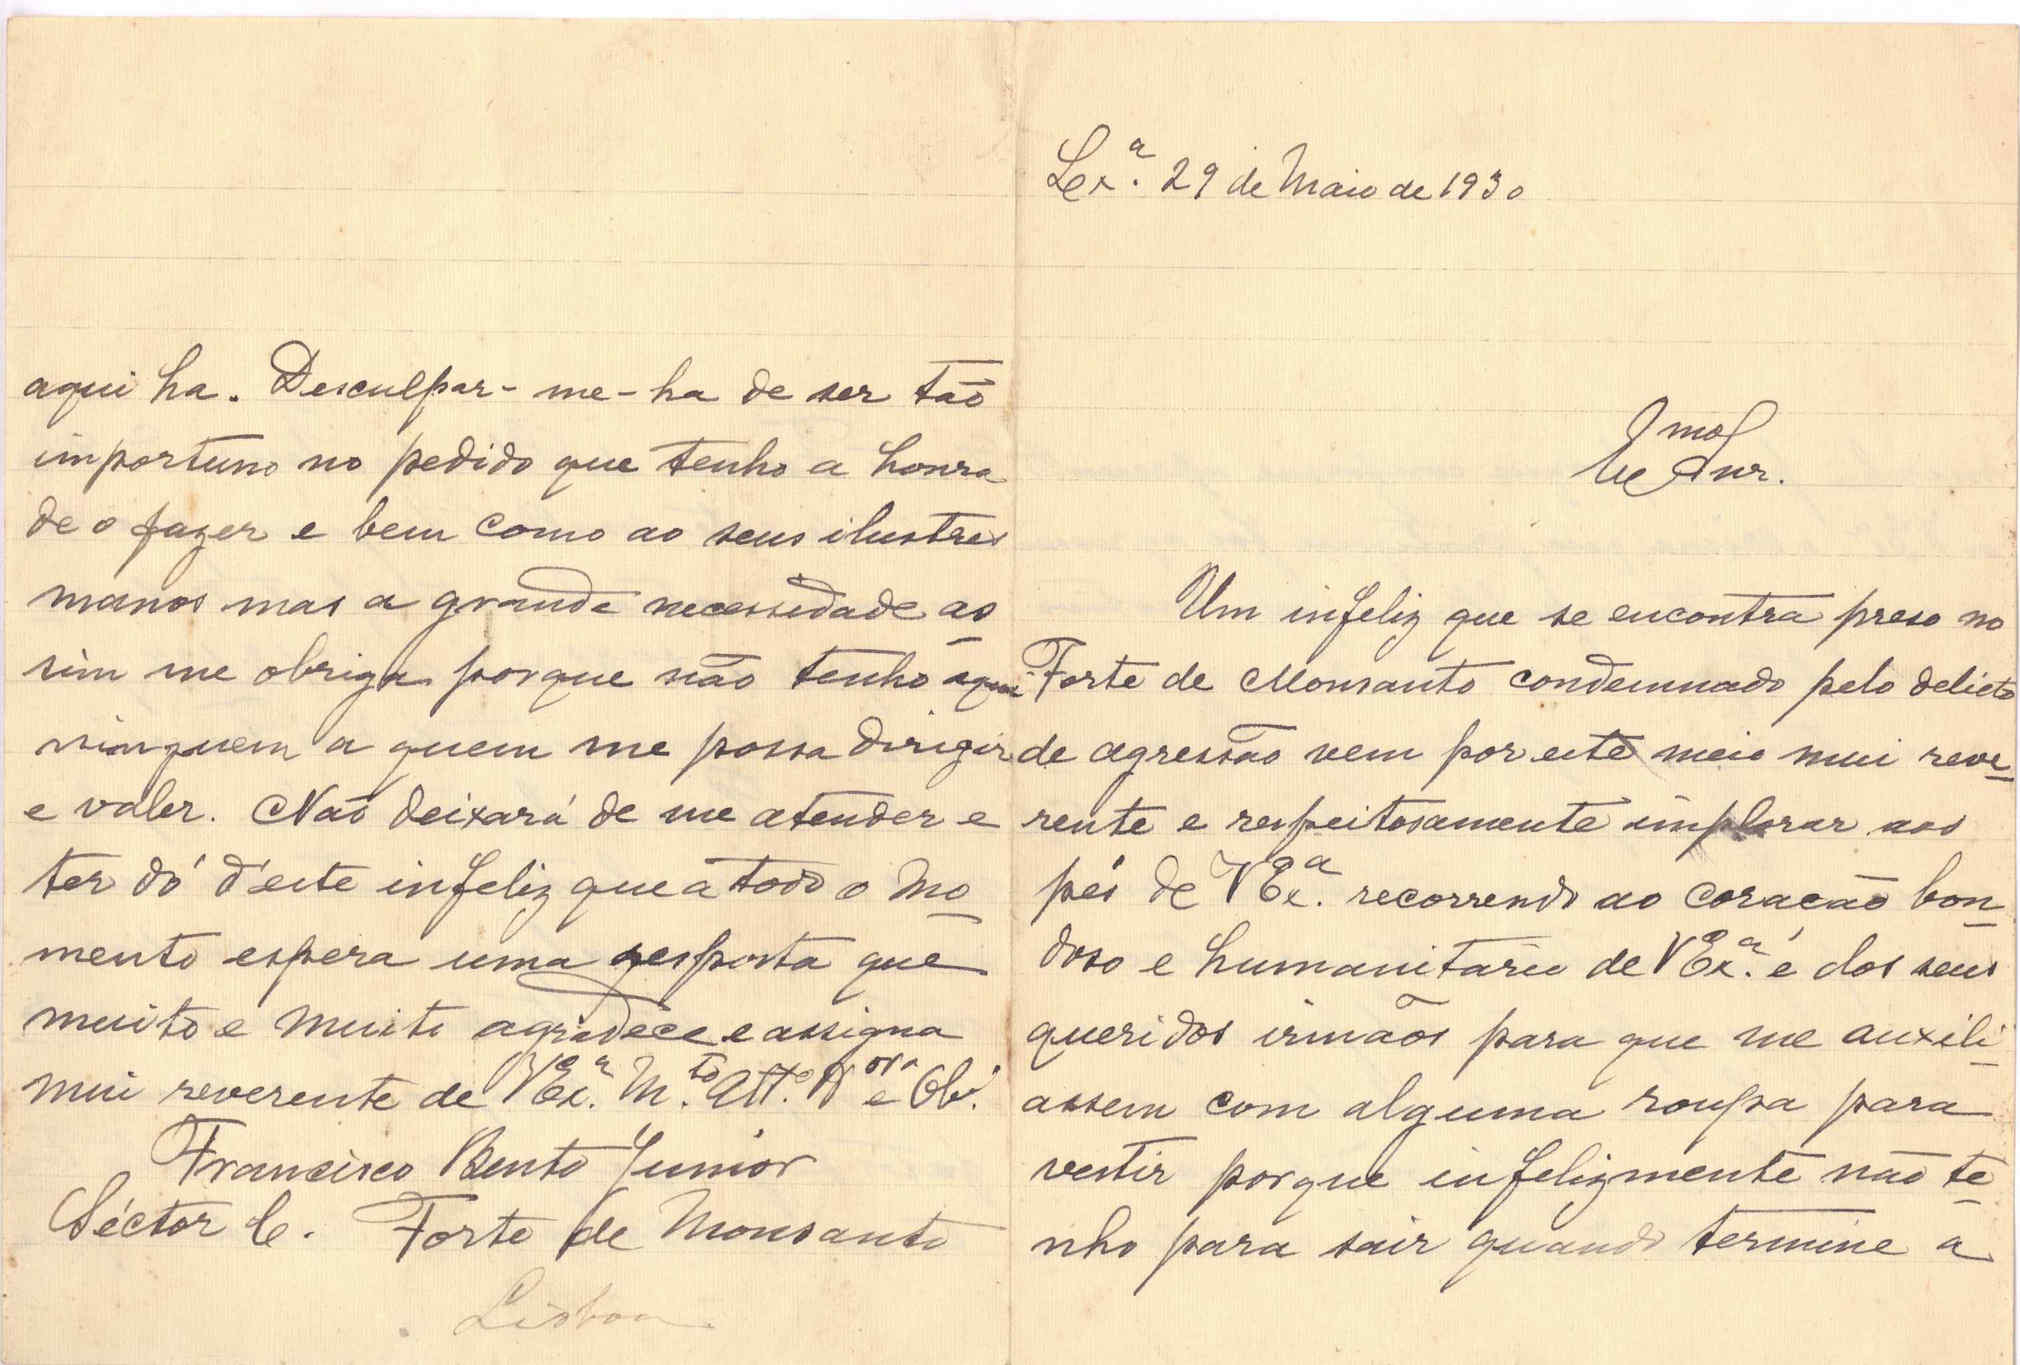 Lxª. 29 de Maio de 1930
Snr.
Um infeliz que se encontra preso no
Forte de Monsanto condemnado pelo delicto
de agressão vem por este meio mui reve-
rente e respeitosamente implorar aos
pés de V Exª. recorrendo ao coração bon-
doso e humanitário de V Exª. e dos seus
queridos irmãos para que me auxili-
assem com alguma roupa para
vestir porque infelizmente não te-
nho para sair quando termine a
aqui ha. Desculpar-me-ha de ser tão
importuno no pedido que tenho a honra
de o fazer e bem como ao seus ilustres
manos mas a grande necessidade as-
sim me obriga porque não tenho aqui
ninguem a quem me possa dirigir
e valer. Não deixará de me atender e
ter dó d'este infeliz que a todo o mo-
mento espera uma resposta que
muito e muito agradece e assigna
mui reverente de V Exª. M.to Att.º V.or e Ob.
Francisco Bento Junior
Séctor C. Forte de Monsanto
Lisboa